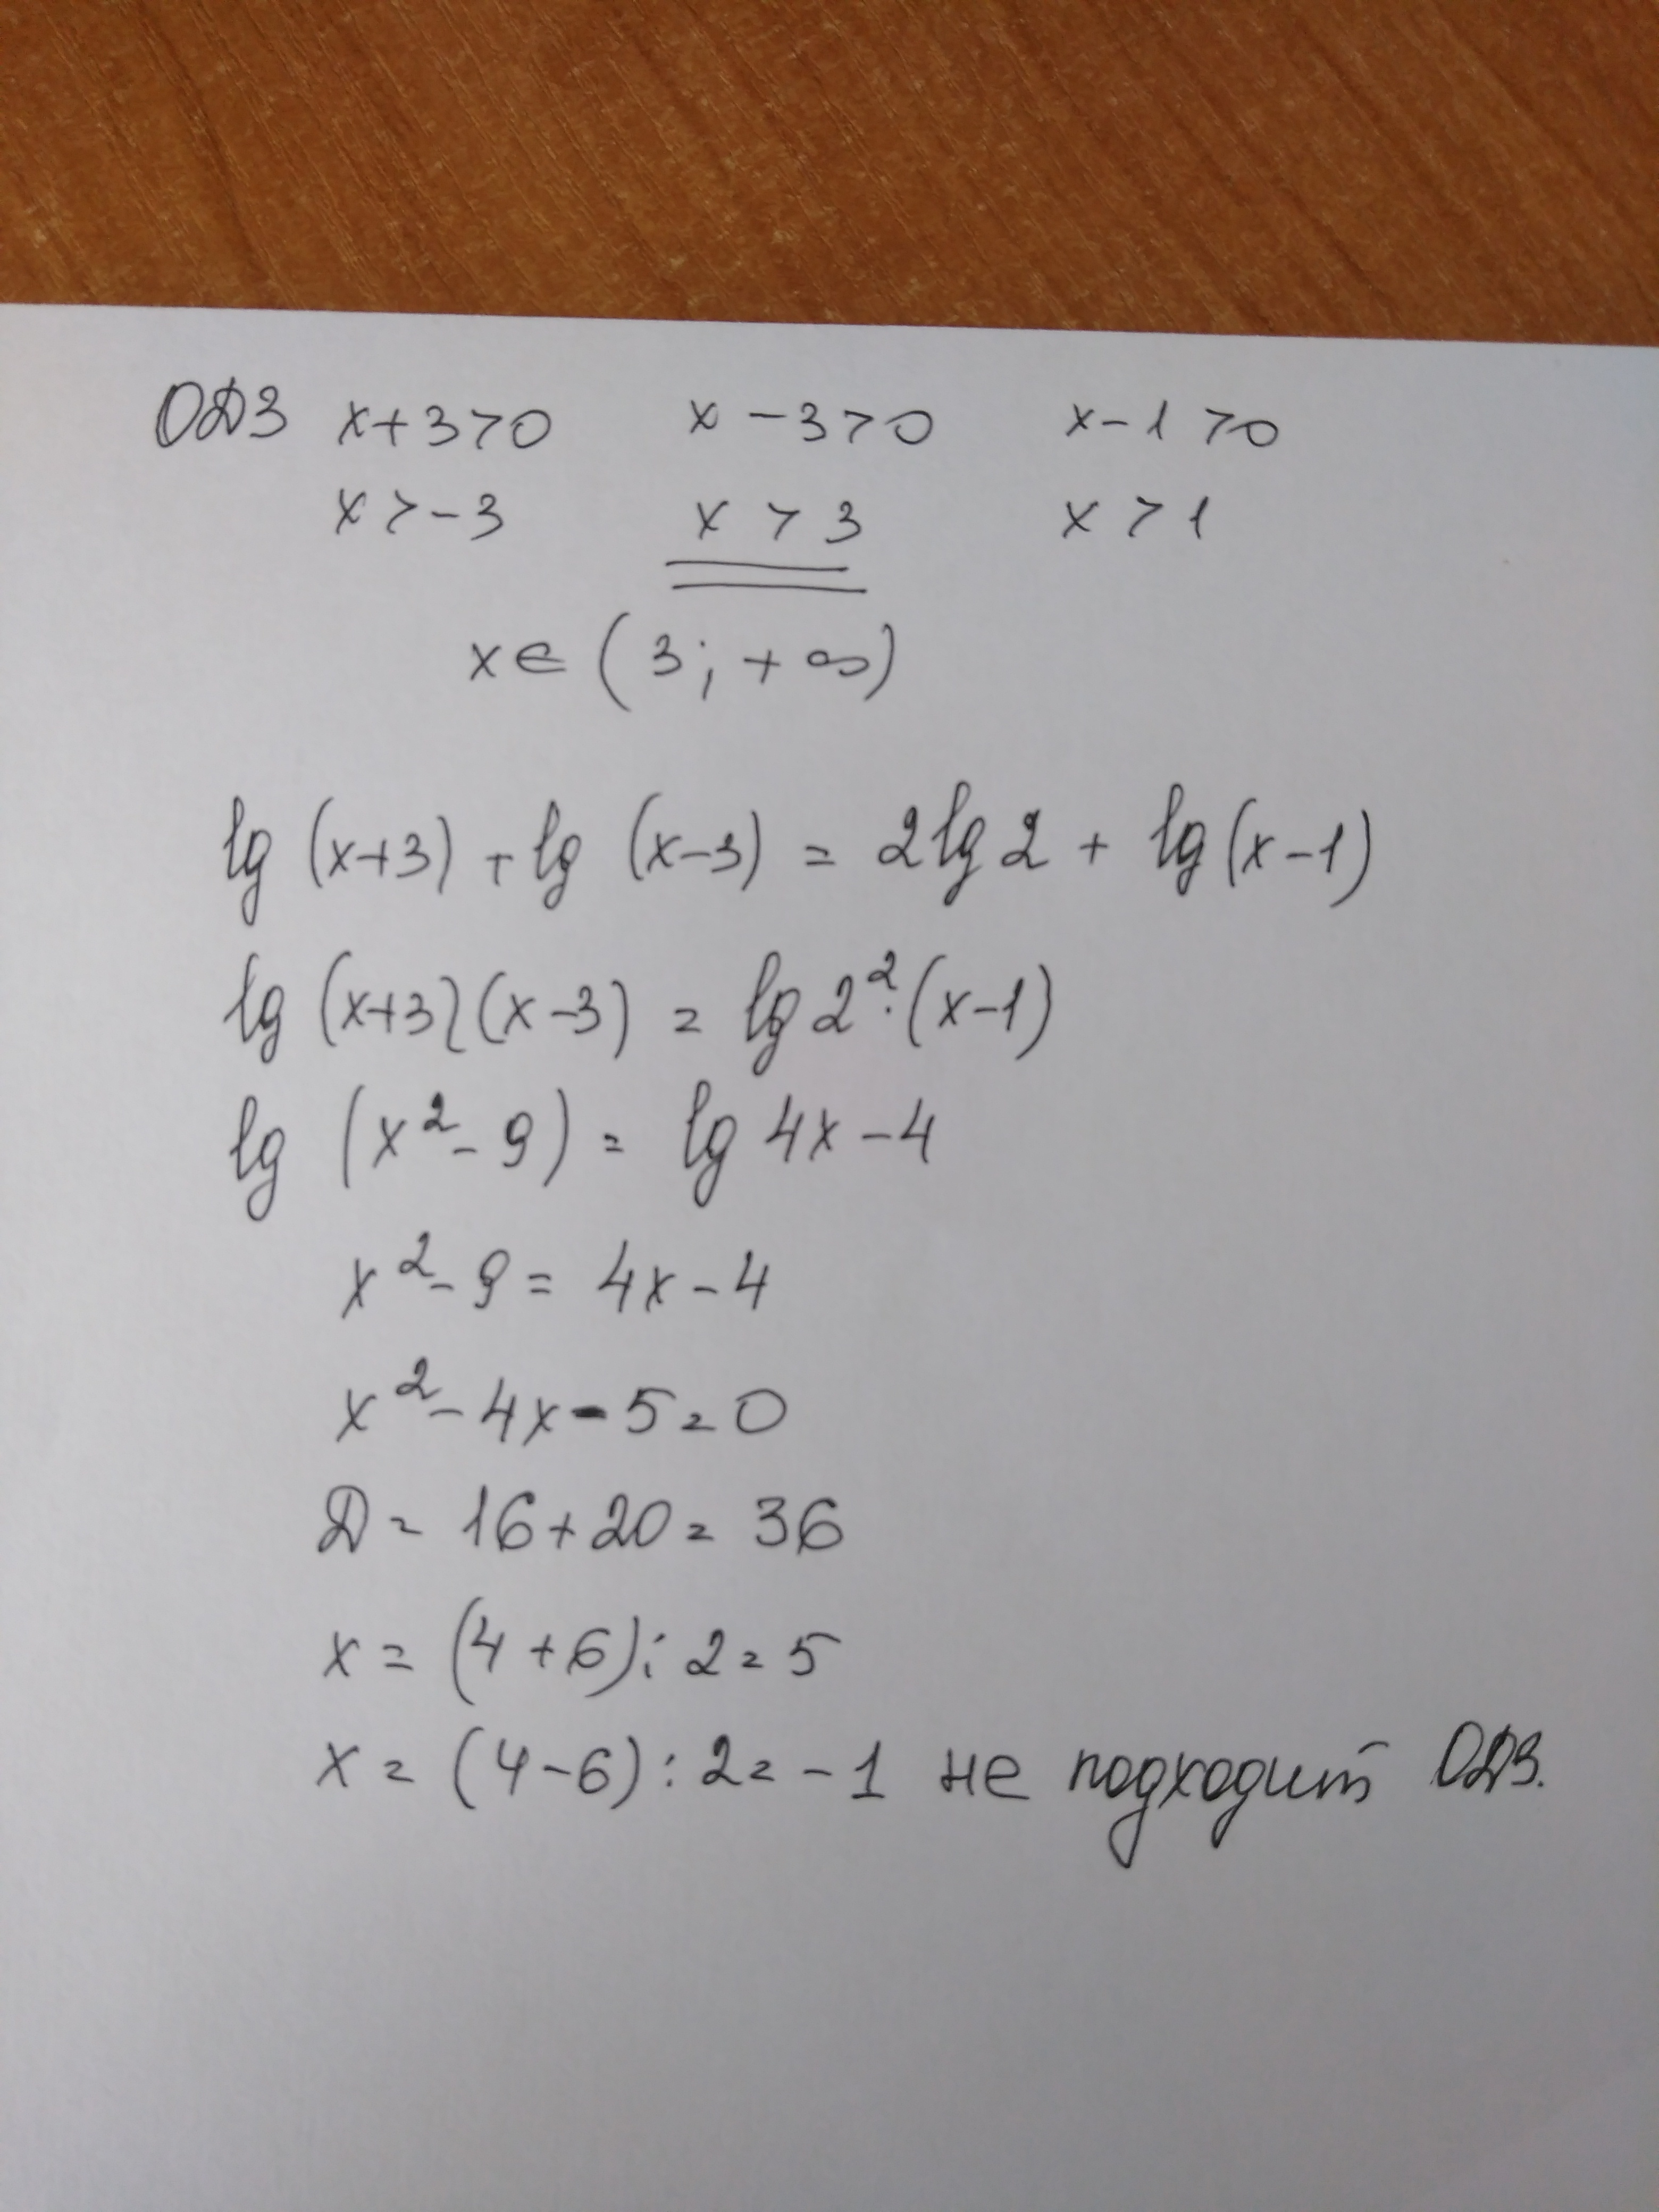 ОДЗ x+3>0 x-3>0 x-1>0
x>-3 x>3 x>1
x∈(3;+∞)
lg(x+3)+lg(x-3)=2lg2+lg(x-1)
lg(x+3)(x-3)=lg2²·(x-1)
lg(x²-9)=lg4x-4
x²-9=4x-4
x²-4x-5=0
Д=16+20=36
x=(4+6):2=5
x=(4-6):2=-1 не подходит ОДЗ.